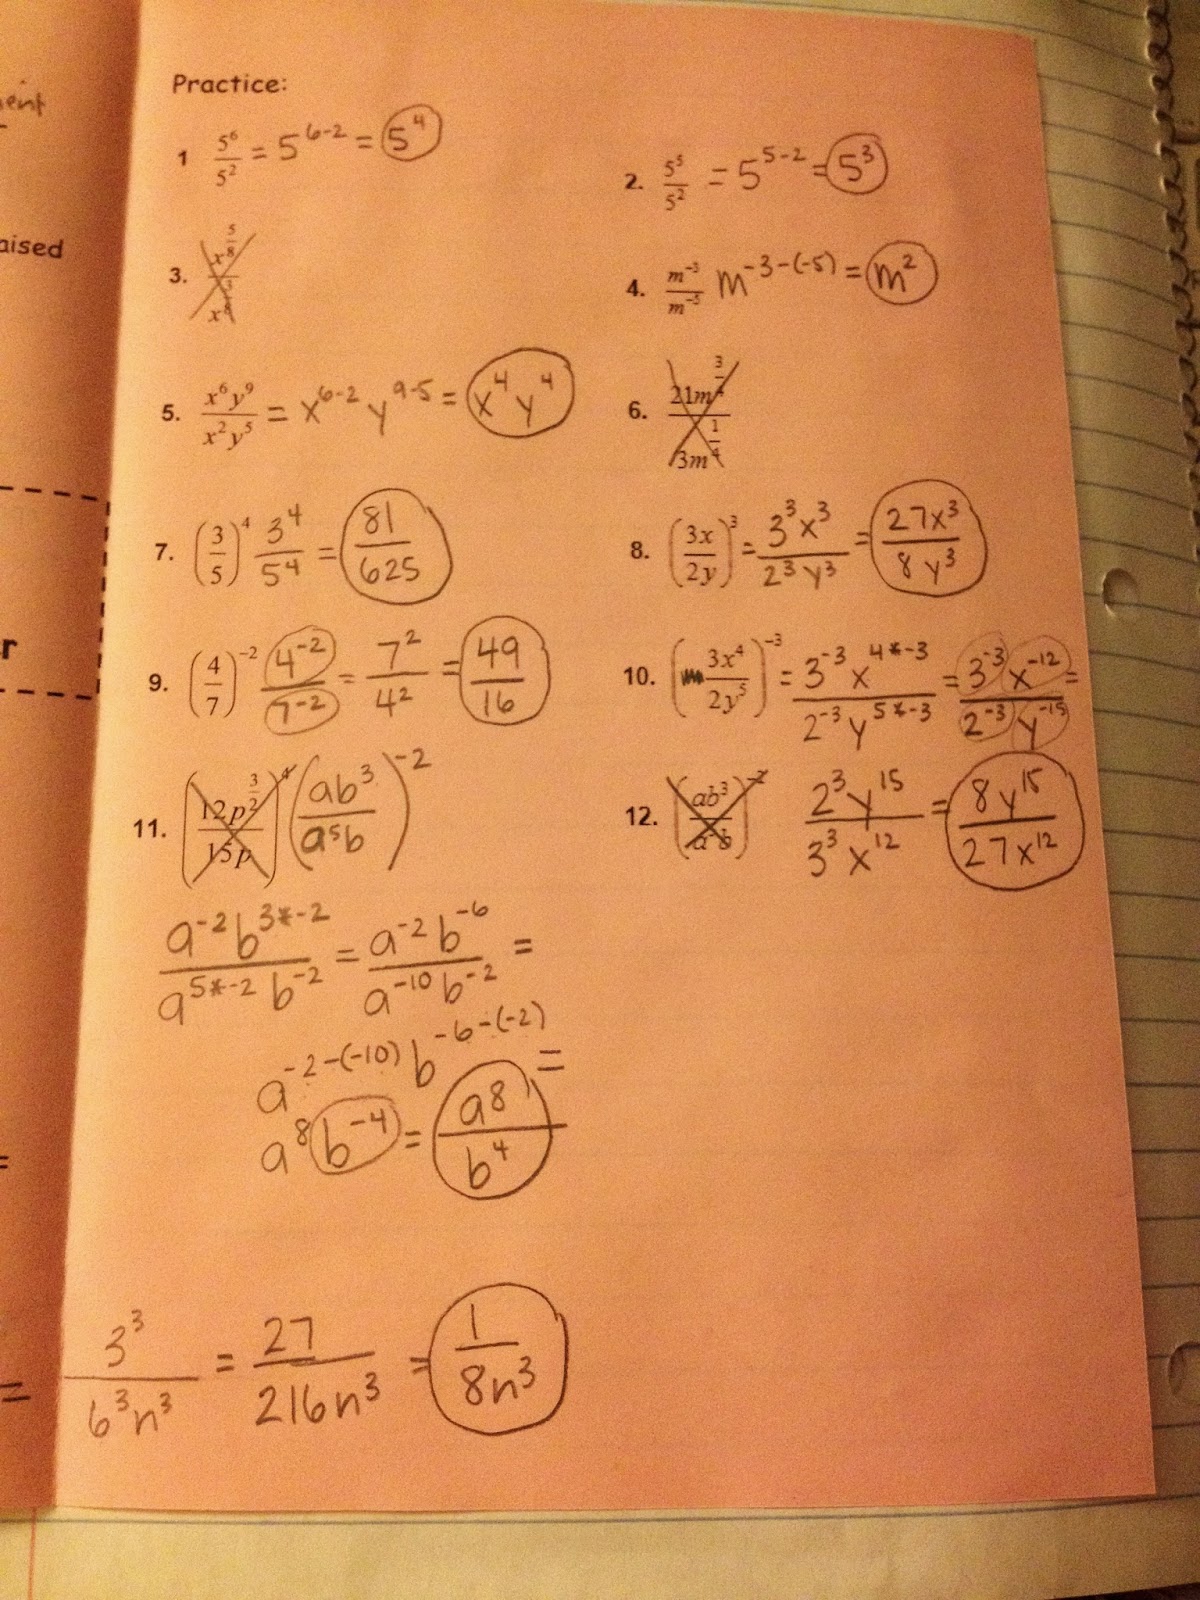 ent
aised
r
=
=
Practice:
1 5⁶/5² = 5⁶⁻² = 5⁴
2. 5⁵/5² = 5⁵⁻² = 5³
3. x^(5/8)
4. m⁻³/m⁻⁵ m^(-3-(-5)) = m²
5. x⁶y⁹/x²y⁵ = x⁶⁻² y⁹⁻⁵ = x⁴ y⁴
6. 21m^(3/4)/3m^(1/4)
7. (3/5)⁴ 3⁴/5⁴ = 81/625
8. (3x/2y)³ = 3³x³/2³y³ = 27x³/8y³
9. (4/7)⁻² 4⁻²/7⁻² = 7²/4² = 49/16
10. (3x⁴/2y⁵)⁻³ = 3⁻³x^(4*-3)/2⁻³y^(5*-3) = 3⁻³x⁻¹²/2⁻³y⁻¹⁵ =
2³y¹⁵/3³x¹² = 8y¹⁵/27x¹²
11. (12p^(3/2)/15p)⁴ (ab³/a⁵b)⁻²
12. (ab³/a b)⁻²
a⁻²b^(3*-2)/a^(5*-2)b⁻² = a⁻²b⁻⁶/a⁻¹⁰b⁻² =
a^(-2-(-10)) b^(-6-(-2)) =
a⁸b⁻⁴ = a⁸/b⁴
3³/6³n³ = 27/216n³ = 1/8n³